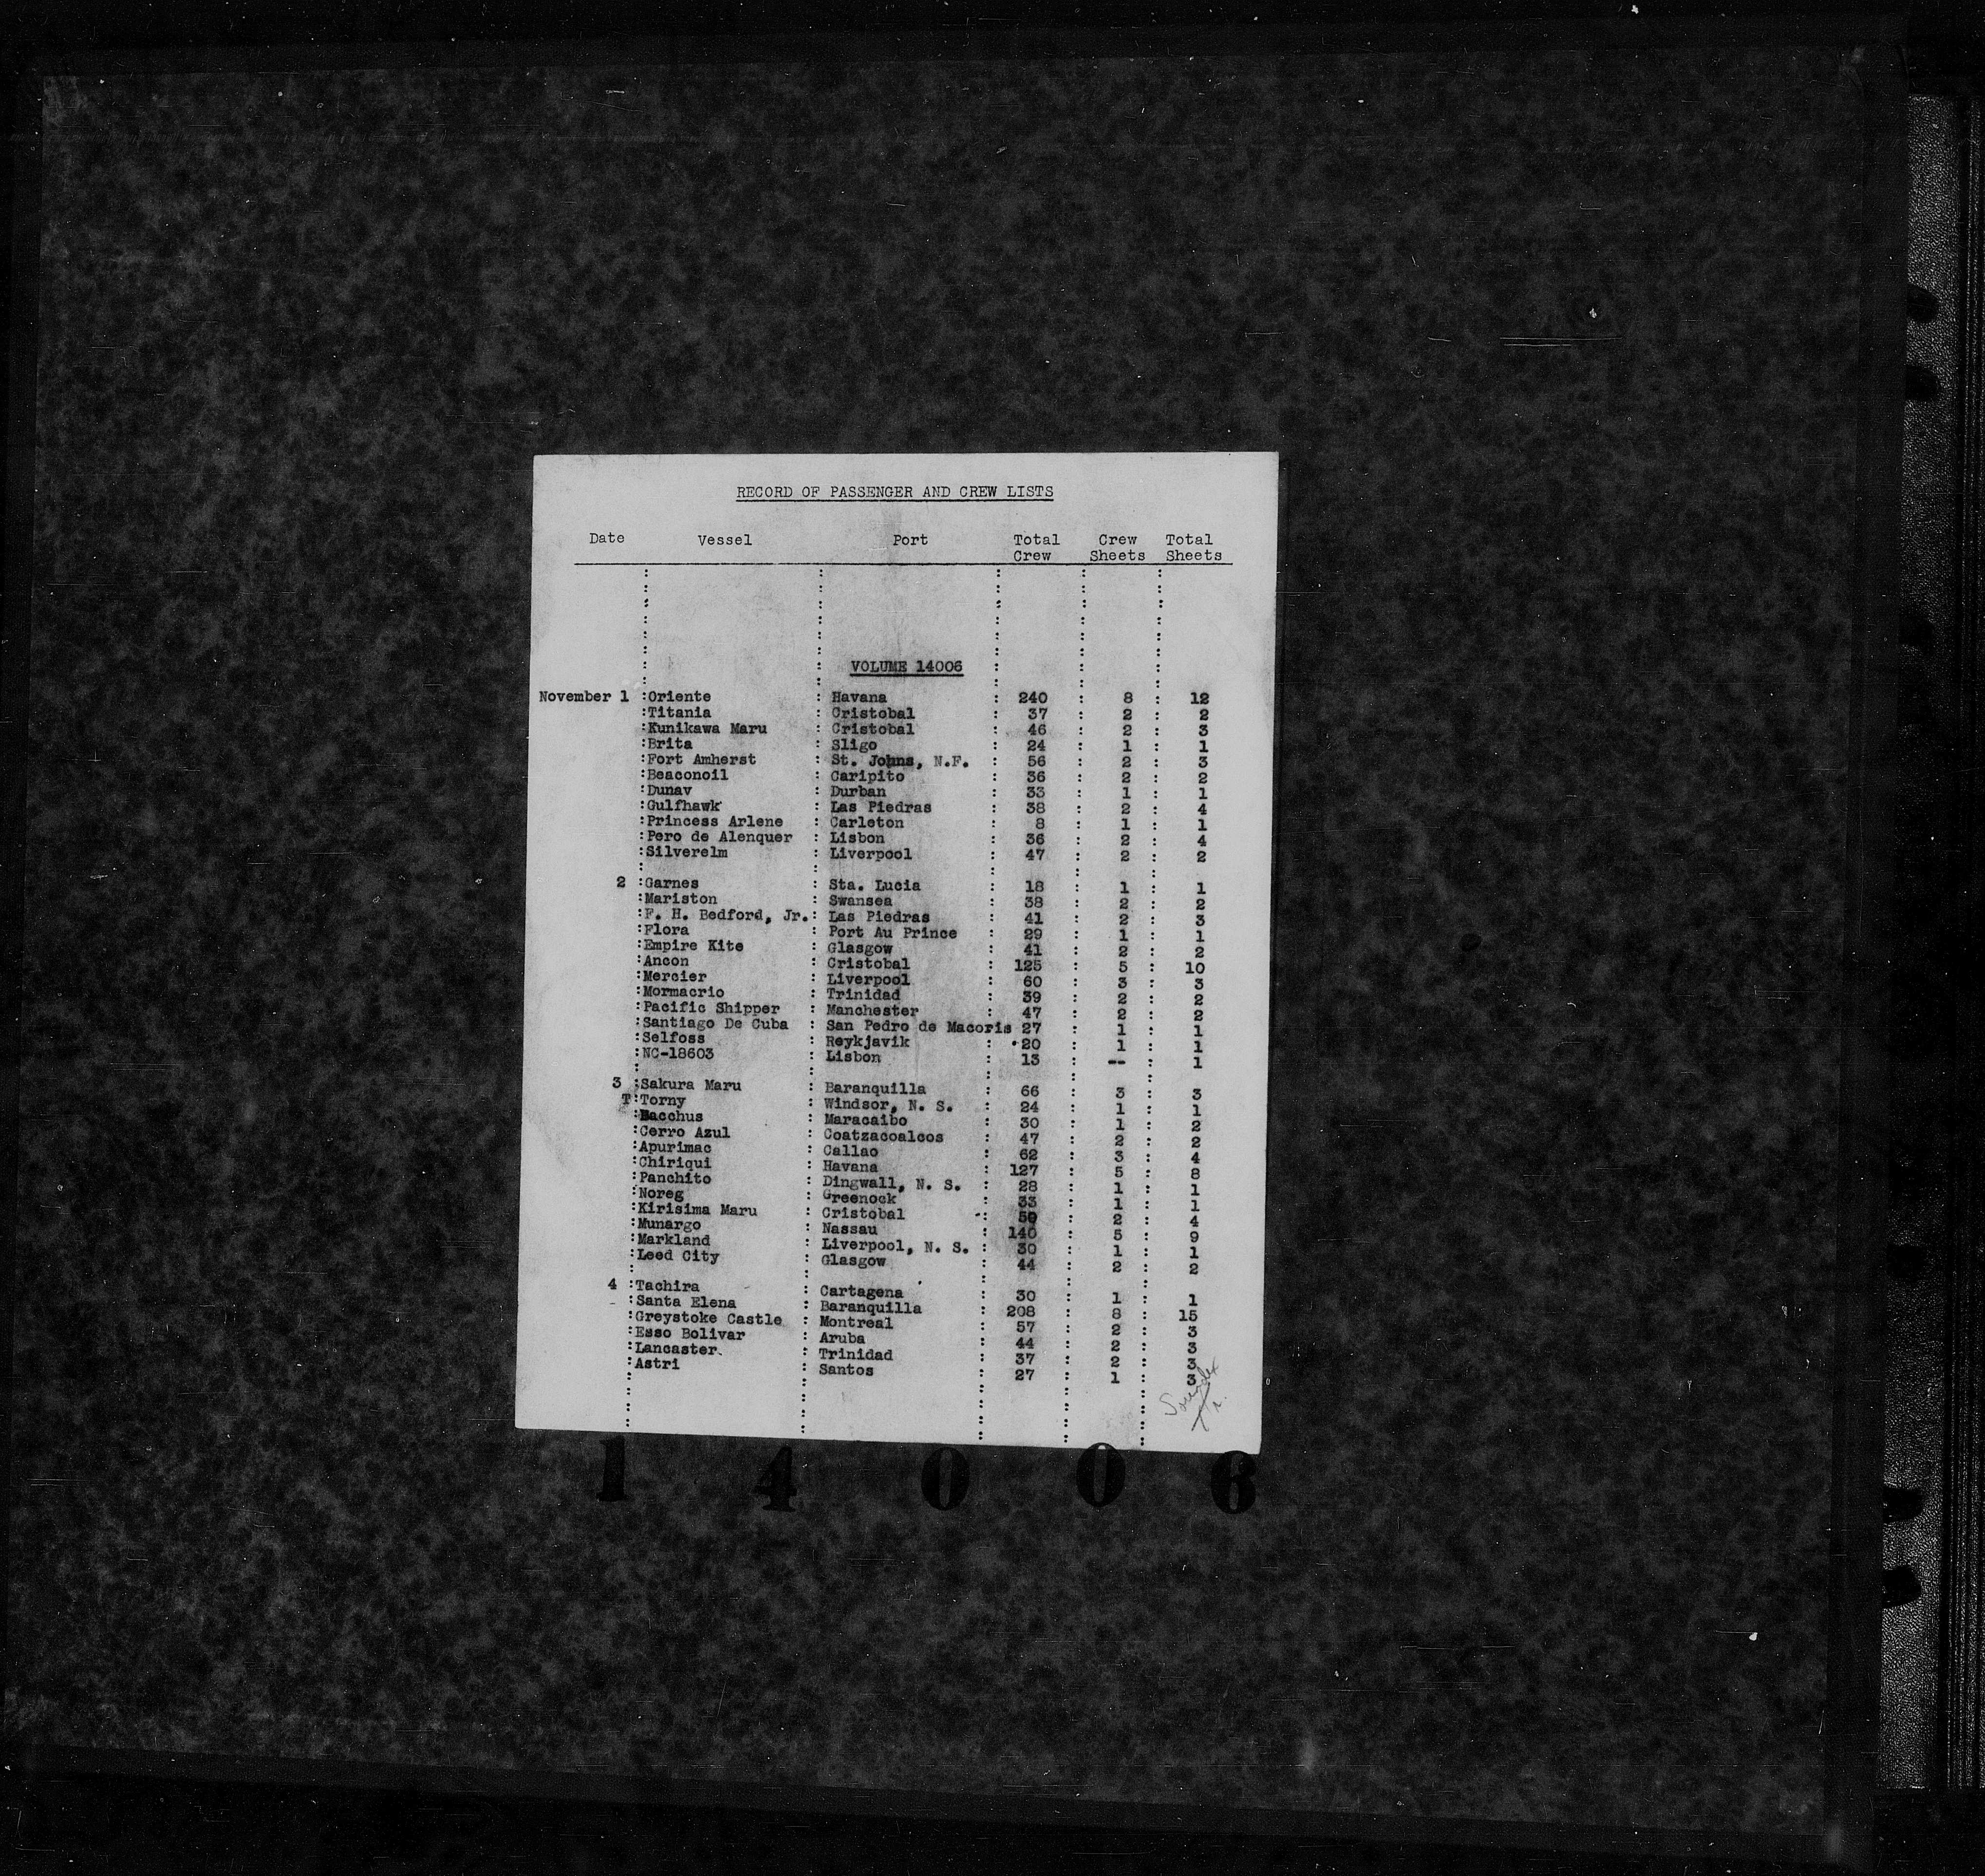 RECORD OF PASSENGER AND CREW LISTS
Date Vessel Port Total Crew Crew Sheets Total Sheets
VOLUME 14006
November 1 :Oriente : Havana : 240 : 8 : 12
:Titania : Cristobal : 37 : 2 : 2
:Kunikawa Maru : Cristobal : 46 : 2 : 3
:Brita : Sligo : 24 : 1 : 1
:Fort Amherst : St. Johns, N.F. : 56 : 2 : 3
:Beaconoil : Caripito : 36 : 2 : 2
:Dunav : Durban : 33 : 1 : 1
:Gulfhawk : Las Piedras : 38 : 2 : 4
:Princess Arlene : Carleton : 8 : 1 : 1
:Pero de Alenquer : Lisbon : 36 : 2 : 4
:Silverelm : Liverpool : 47 : 2 : 2
2 :Garnes : Sta. Lucia : 18 : 1 : 1
:Mariston : Swansea : 38 : 2 : 2
:F. H. Bedford, Jr.: Las Piedras : 41 : 2 : 3
:Flora : Port Au Prince : 29 : 1 : 1
:Empire Kite : Glasgow : 41 : 2 : 2
:Ancon : Cristobal : 125 : 5 : 10
:Mercier : Liverpool : 60 : 3 : 3
:Mormacrio : Trinidad : 39 : 2 : 2
:Pacific Shipper : Manchester : 47 : 2 : 2
:Santiago De Cuba : San Pedro de Macoris 27 : 1 : 1
:Selfoss : Reykjavik : 20 : 1 : 1
:NC-18603 : Lisbon : 13 : -- : 1
3 :Sakura Maru : Baranquilla : 66 : 3 : 3
T:Torny : Windsor, N. S. : 24 : 1 : 1
:Bacchus : Maracaibo : 30 : 1 : 2
:Cerro Azul : Coatzacoalcos : 47 : 2 : 2
:Apurimac : Callao : 62 : 3 : 4
:Chiriqui : Havana : 127 : 5 : 8
:Panchito : Dingwall, N. S. : 28 : 1 : 1
:Noreg : Greenock : 33 : 1 : 1
:Kirisima Maru : Cristobal : 50 : 2 : 4
:Munargo : Nassau : 140 : 5 : 9
:Markland : Liverpool, N. S. : 30 : 1 : 1
:Leed City : Glasgow : 44 : 2 : 2
4 :Tachira : Cartagena : 30 : 1 : 1
:Santa Elena : Baranquilla : 208 : 8 : 15
:Greystoke Castle : Montreal : 57 : 2 : 3
:Esso Bolivar : Aruba : 44 : 2 : 3
:Lancaster : Trinidad : 37 : 2 : 3
:Astri : Santos : 27 : 1 : 3
Soundex
14006